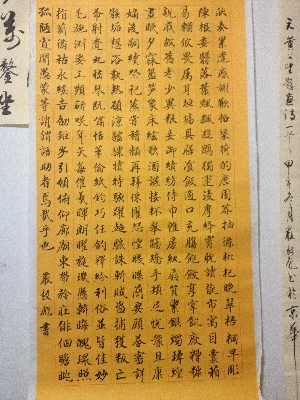 欣奏累遣慼謝歡招渠荷的歷園莽抽條枇杷晚翠梧桐早凋
陳根委翳落葉飄颻遊鵾獨運凌摩絳霄耽讀翫市寓目囊箱
易輶攸畏屬耳垣牆具膳飡飯適口充腸飽飫烹宰飢厭糟糠
親戚故舊老少異糧妾御績紡侍巾帷房紈扇員潔銀燭煒煌
晝眠夕寐藍筍象床絃歌酒讌接杯舉觴矯手頓足悅豫且康
嫡後嗣續祭祀蒸嘗稽顙再拜悚懼恐惶牋牒簡要顧答審詳
骸垢想浴執熱願涼驢騾犢特駭躍超驤誅斬賊盜捕獲叛亡
布射遼丸嵇琴阮嘯恬筆倫紙鈞巧任釣釋紛利俗並皆佳妙
毛施淑姿工顰妍笑年矢每催曦暉朗曜琁璣懸斡晦魄環照
指薪修祜永綏吉劭矩步引領俯仰廊廟束帶矜莊徘徊瞻眺
孤陋寡聞愚蒙等誚謂語助者焉哉乎也 書
甲午冬月 於京華
萬 坐